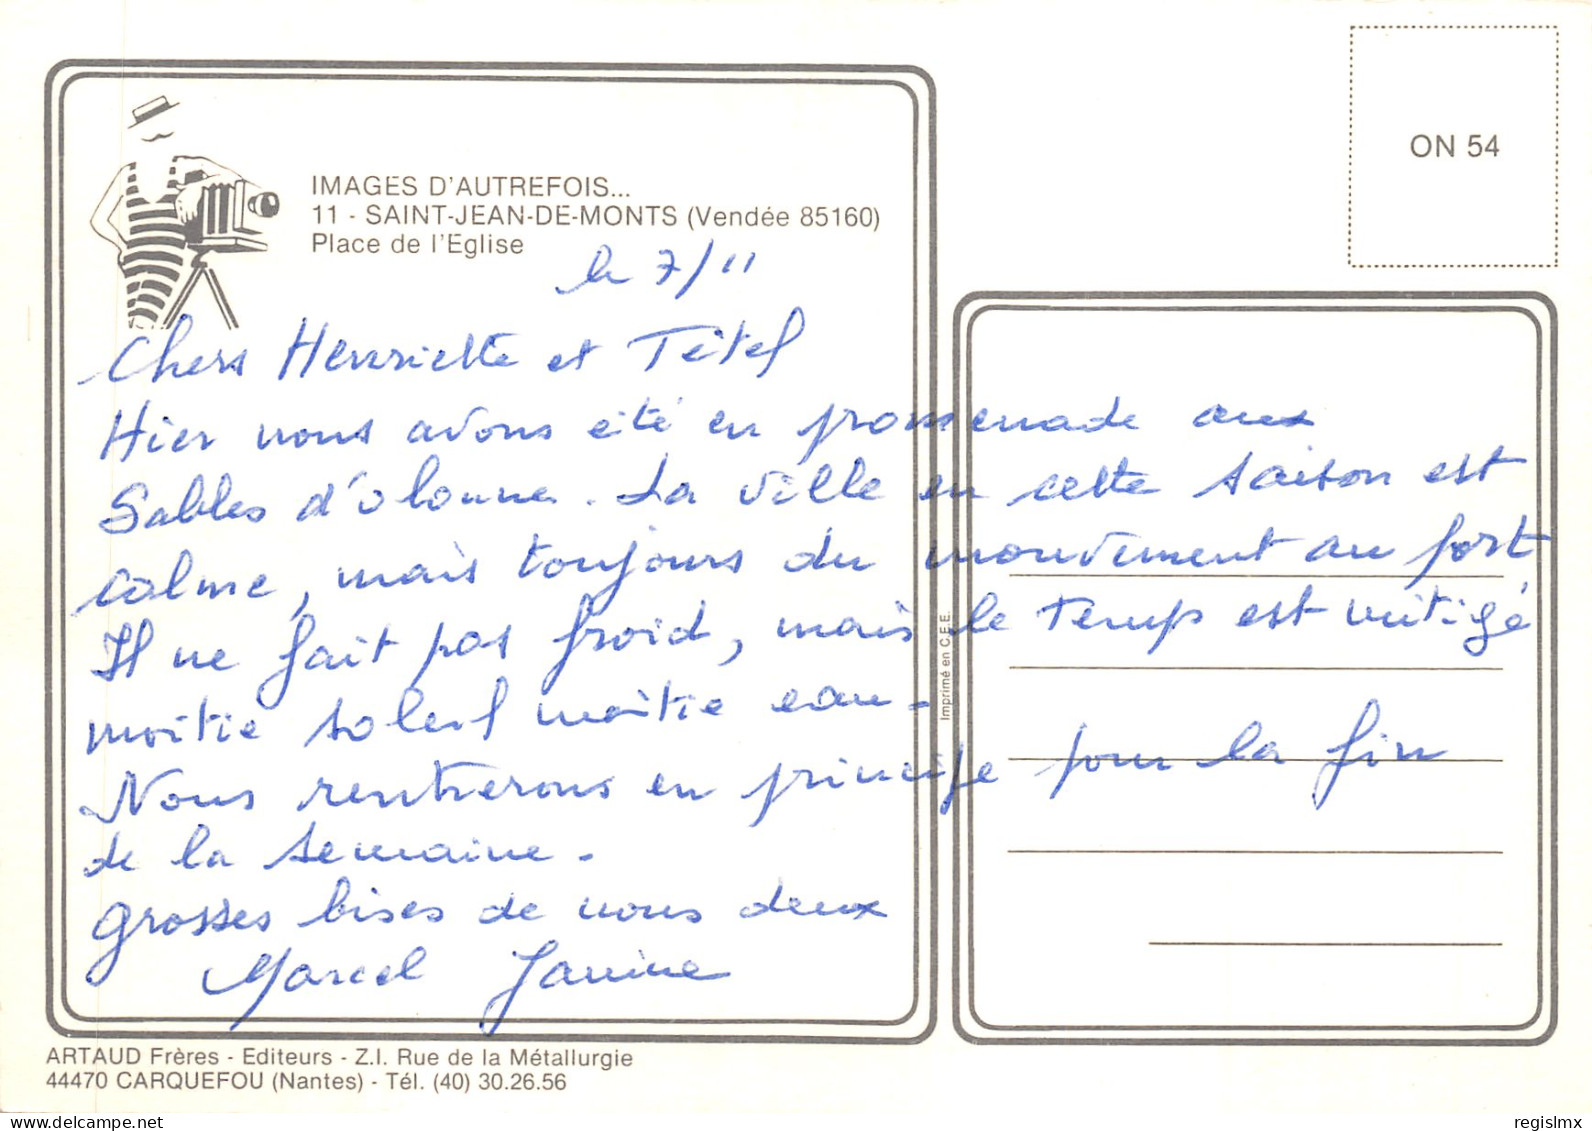 IMAGES D'AUTREFOIS...
11 - SAINT-JEAN-DE-MONTS (Vendée 85160)
Place de l'Eglise
ON 54
le 7/11
Chers Henriette et
Hier nous avons été en promenade aux
Sables d'olonne. La ville en cette saison est
calme, mais toujours du mouvement au port
Il ne fait pas froid, mais le temps est mitigé
moitie soleil moitie eau.
Nous rentrerons en principe pour la fin
de la semaine.
grosses bises de nous deux
Marcel Janine
Imprimé en C.E.E.
ARTAUD Frères - Editeurs - Z.I. Rue de la Métallurgie
44470 CARQUEFOU (Nantes) - Tél. (40) 30.26.56
regislmx